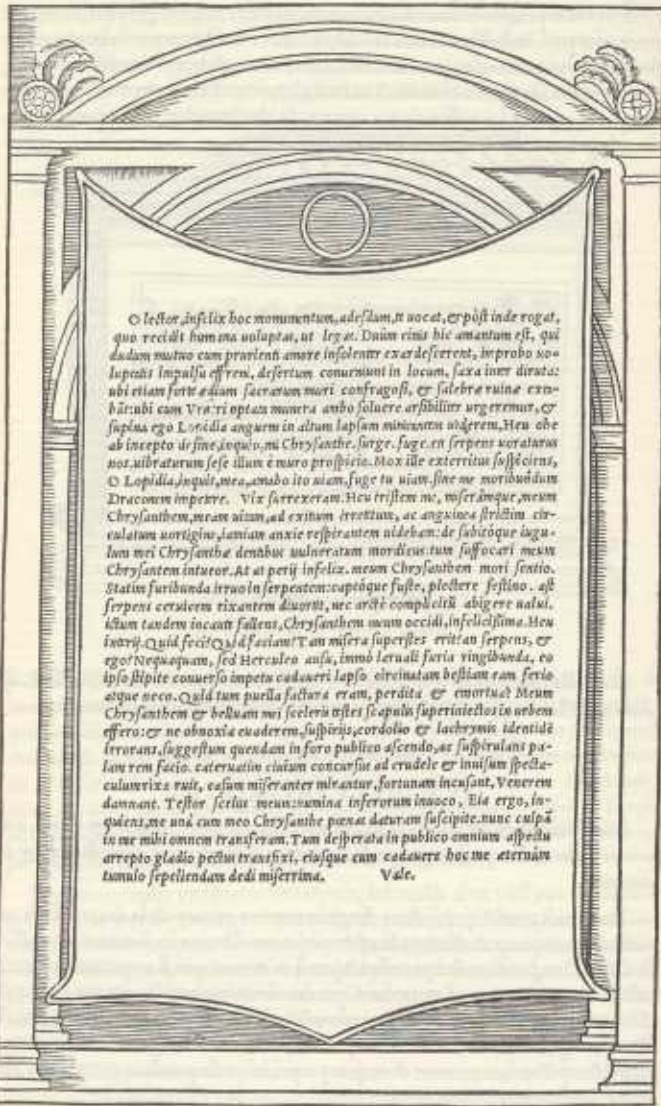 O lector, infelix hoc monumentum, adesdum, te uocat, & pòst inde rogat,
quo recidit humana uoluptas, ut legas. Duûm cinis hic amantum est, qui
dudum mutuo cum prurienti amore insolenter exardescerent, improbo uo-
luptatis impulsu effreni, desertum conueniunt in locum, saxa inter diruta:
ubi etiam fortè ædium sacrarum muri confragosi, & salebræ ruinæ exta-
bãt: ubi cum optata munera ambo soluere urgeremur, &
supina ego Lopidia anguem in altum lapsum minitantem uiderem, Heu ohe
ab incepto desine, inquio, mi Chrysanthe. surge. fuge. en serpens uoraturus
nos. uibraturum sese illum è muro prospicio. Mox ille exterritus suspiciens,
O Lopidia, inquit, mea, amabo ito uiam. fuge tu uiam. sine me moribundum
Draconem impetere. Vix surrexeram. Heu tristem me, miserámque, meum
Chrysanthem, meam uitam, ad exitum irretitum, ac anguinea strictim cir-
culatum uortigine, iamiam anxie respirantem uidebam: de subitóque iugu-
lum mei Chrysanthæ dentibus uulneratum mordicus. tum suffocari meum
Chrysantem intueor. At at perij infelix. meum Chrysanthem mori sentio.
Statim furibunda irruo in serpentem: captóque fuste, plectere festino. ast
serpens ceruicem rixantem diuortit, nec arctè complicitũ abigere ualui.
ictum tandem incautè fallens, Chrysanthem meum occidi, infelicissima. Heu
interij. Quid feci? Quid faciam? Tam misera superstes erit tan serpens, &
ego? Nequaquam, sed Herculeo ausu, immò laruali furia ringibunda, eo
ipso stipite conuerso impetu cadaueri lapso circinatam bestiam eam ferio
atque neco. Quid tum puella factura eram, perdita & emortua? Meum
Chrysanthem & belluam mei sceleris testes scapulis superiniectos in urbem
effero: & ne obnoxia euaderem, suspirijs, cordolio & lachrymis identidẽ
irrorans, suggestum quendam in foro publico ascendo, ac suspirulans pa-
lam rem facio. cateruatim ciuium concursus ad crudele & inuisum specta-
culum rixa ruit, casum miseranter mirantur, fortunam incusant, Venerem
damnant. Testor scelus meum: numina inferorum inuoco, Eia ergo, in-
quiens, me unà cum meo Chrysanthe pœnas daturam suscipite. nunc culpã
in me mihi omnem transferam. Tum desperata in publico omnium aspectu
arrepto gladio pectus transfixi, eiusque cum cadauere hoc me æternùm
tumulo sepeliendam dedi miserrima. Vale.